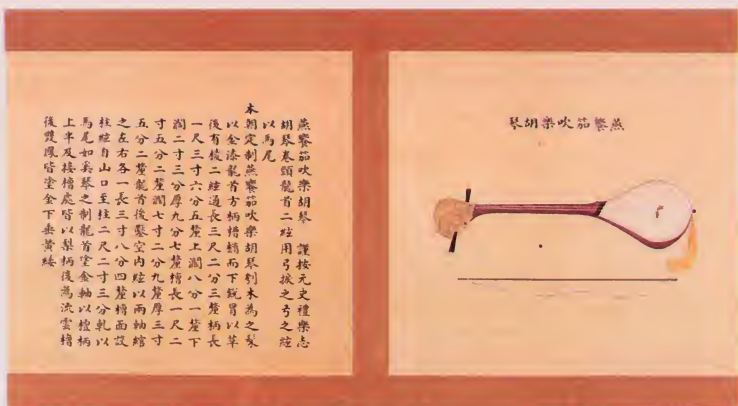 燕饗笳吹樂胡琴
燕饗笳吹樂胡琴 謹按元史禮樂志
胡琴卷頸龍首二絃用弓捩之弓之絃
以馬尾
本朝定制燕饗笳吹樂胡琴刳木為之髹
以金漆龍首方柄槽橢而下銳冒以革
後有棱二絃通長三尺二分三釐柄長
一尺三寸六分五釐上濶八分一釐下
濶二寸三分厚九分七釐槽長一尺二
寸五分二釐濶七寸二分九釐厚三寸
五分二釐龍首後鑿空內絃以兩軸綰
之左右各一長三寸八分四釐槽面設
柱絃自山口至柱二尺二寸三分軋以
馬尾如奚琴之制龍首塗金軸以檀柄
上半及接槽處皆以梨柄後為流雲槽
後雙鳳皆塗金下垂黃緌